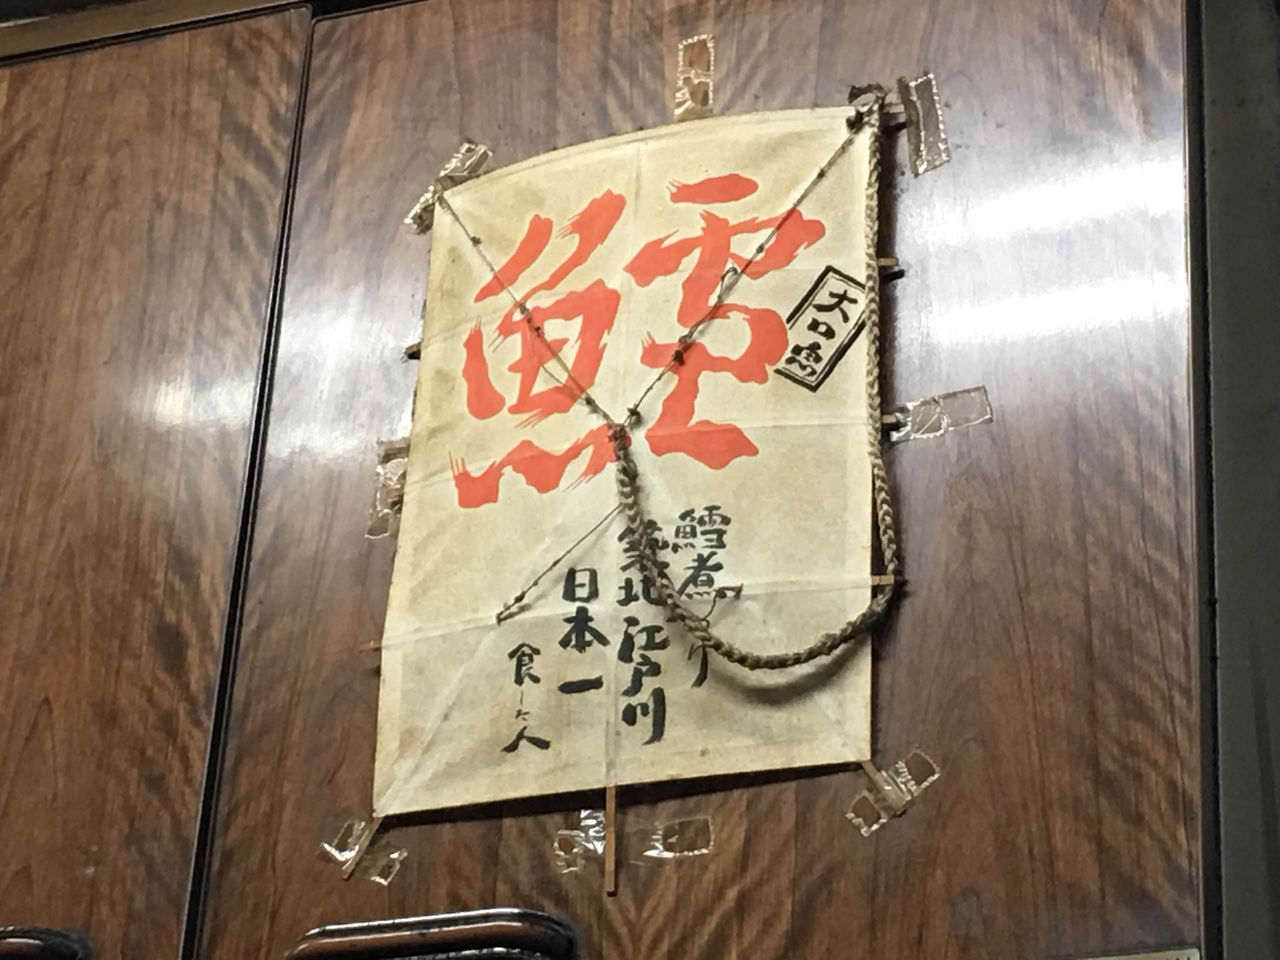 鱈
大口魚
鱈煮つけ
築地 江戸川
日本一
食した人